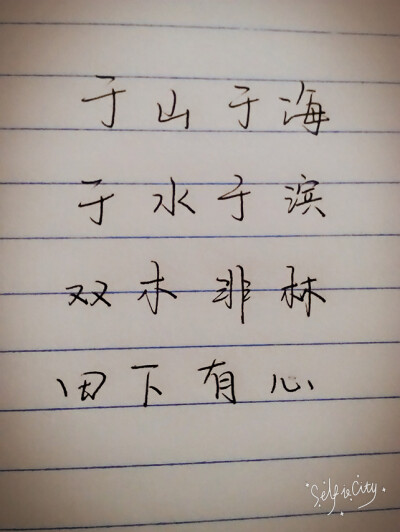 于山于海
于水于滨
双木非林
田下有心
SelfieCity